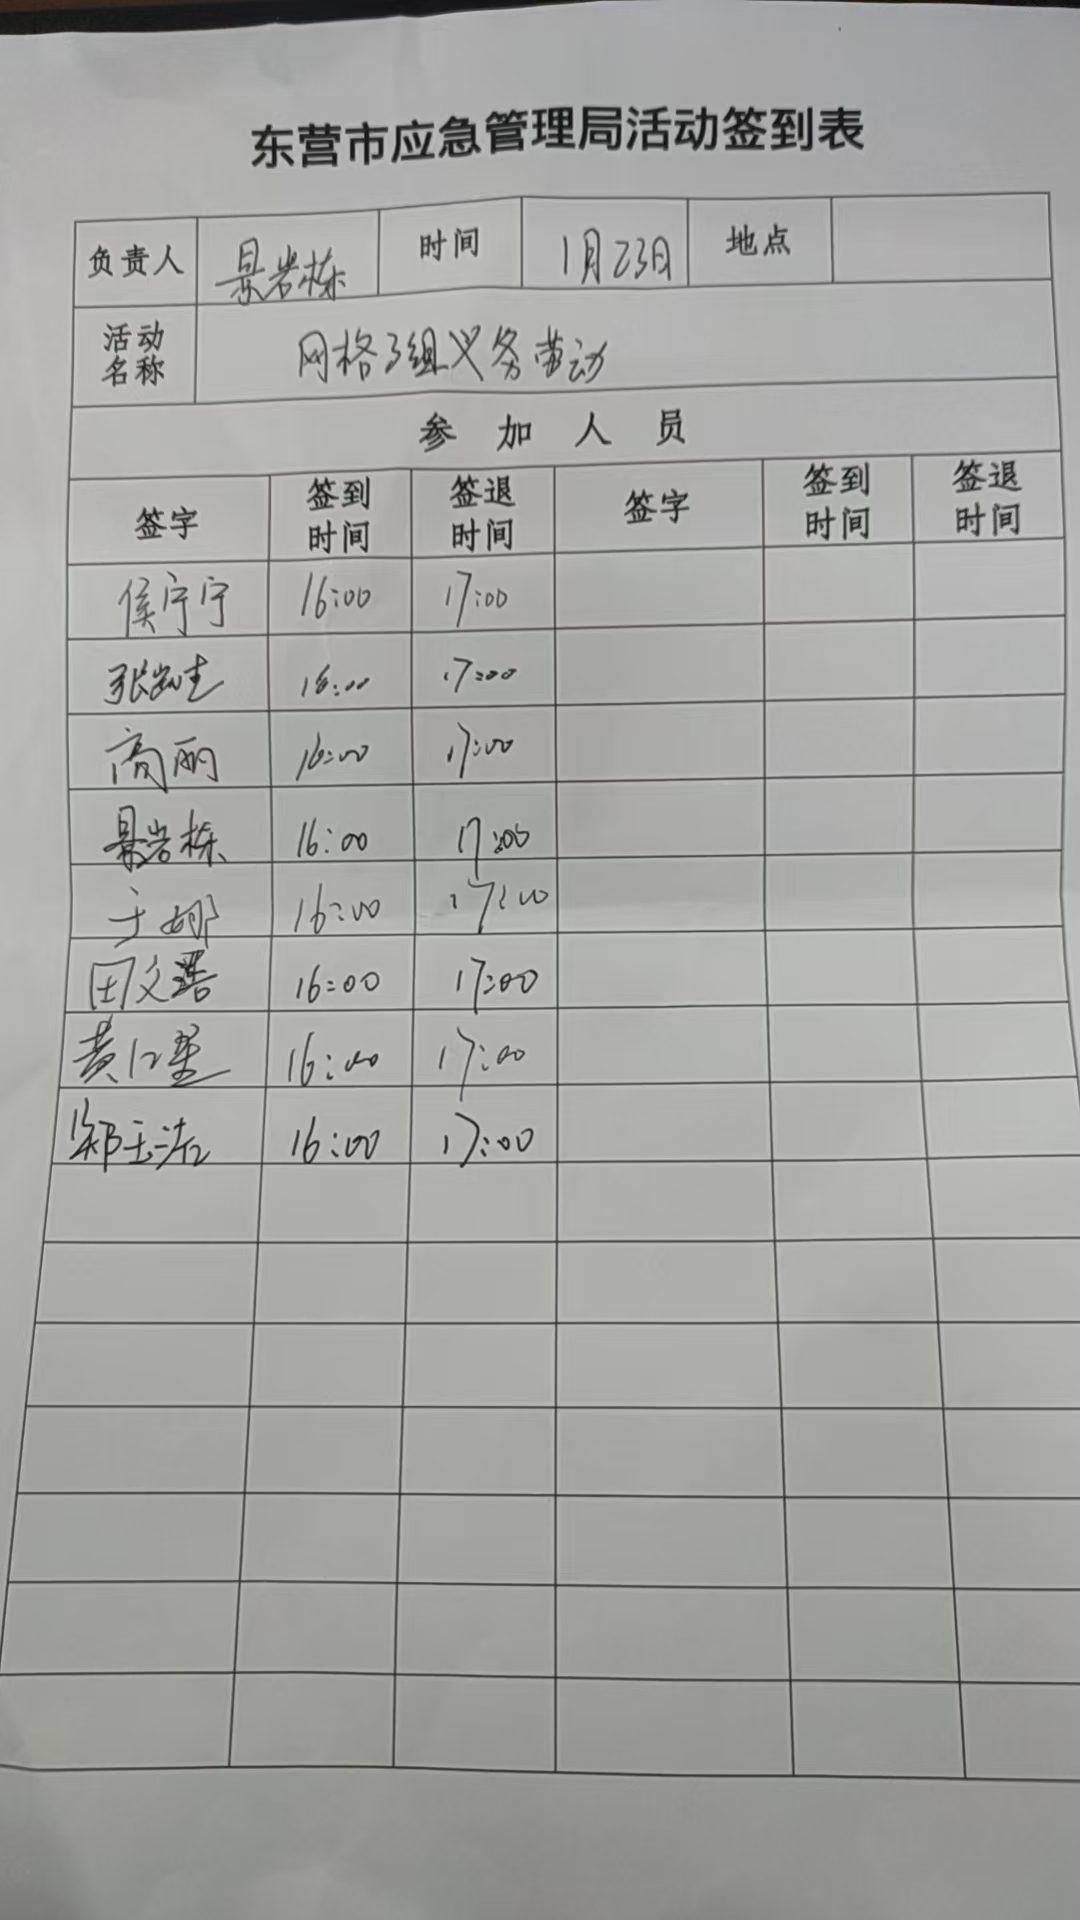 东营市应急管理局活动签到表
负责人 景岩栋 时间 1月23日 地点
活动名称 网格3组义务劳动
参加人员
签字 签到时间 签退时间 签字 签到时间 签退时间
侯宁宁 16:00 17:00
16:00 17:00
高丽 16:00 17:00
景岩栋 16:00 17:00
于娜 16:00 17:00
16:00 17:00
16:00 17:00
16:00 17:00